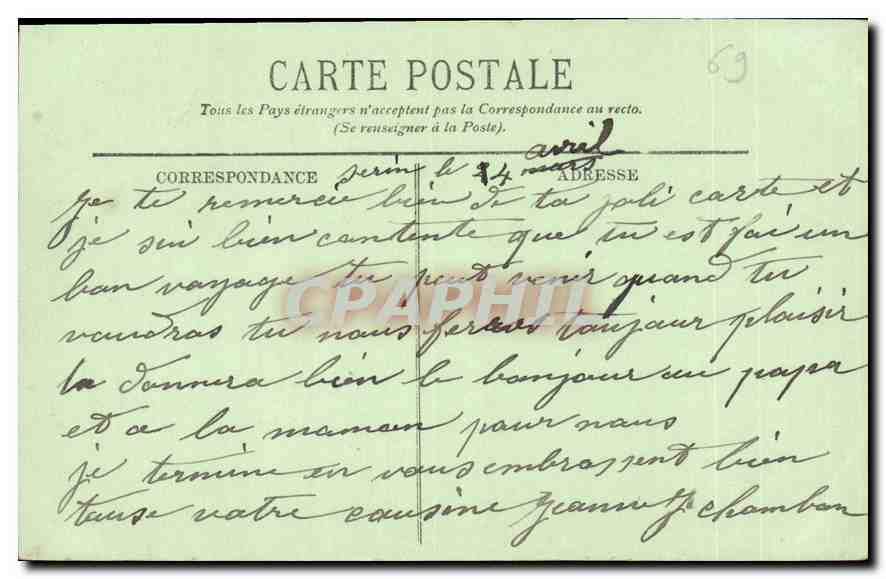 69
CARTE POSTALE
Tous les Pays étrangers n'acceptent pas la Correspondance au recto.
(Se renseigner à la Poste).
avril
CORRESPONDANCE serin le 24 mars ADRESSE
Je te remercie bien de ta joli carte et
je sui bien contente que tu est fai un
bon voyage tu peut venir quand tu
voudras tu nous feras toujour plaisir
tu donnera bien le bonjour au papa
et a la maman pour nous
je termine en vous embrassent bien
tause votre cousine Jeanne Chambon
CPAPHIL